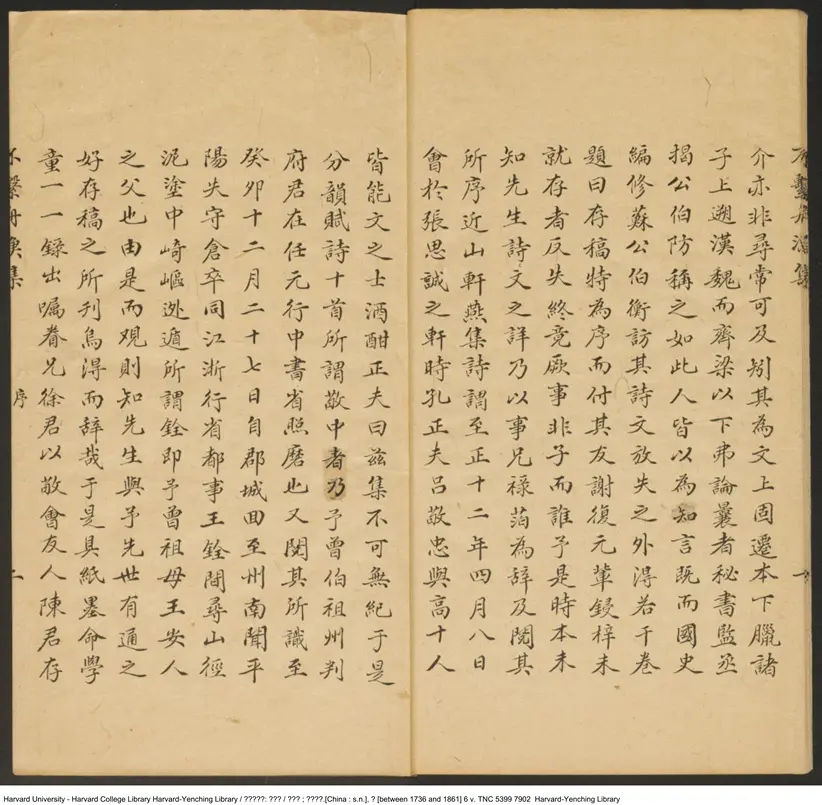 介亦非尋常可及矧其為文上固遷本下臘諸
子上遡漢魏而齊梁以下弗論曩者秘書監丞
揭公伯防稱之如此人皆以為知言既而國史
編修蘇公伯衡訪其詩文放失之外得若干卷
題曰存稿特為序而付其友謝復元輩鋟梓未
就存者反失終竟厥事非子而誰予是時本未
知先生詩文之詳乃以事兄祿蒞為辞及閱其
所序近山軒燕集詩謂至正十二年四月八日
會於張思誠之軒時孔正夫呂敬忠與高十人
皆能文之士酒酣正夫曰茲集不可無紀于是
分韻賦詩十首所謂敬中者乃予曾伯祖州判
府君在任元行中書省照磨也又閱其所識至
癸卯十二月二十七日自郡城回至州南聞平
陽失守倉卒同江浙行省都事王銓間尋山徑
泥塗中崎嶇迯遁所謂銓即予曾祖母王安人
之父也由是而观則知先生與予先世有通之
好存稿之所刊烏得而辞哉于是具紙墨命學
童一一錄出嘱眷兄徐君以敬會友人陳君存
不繫舟漁集
序
二